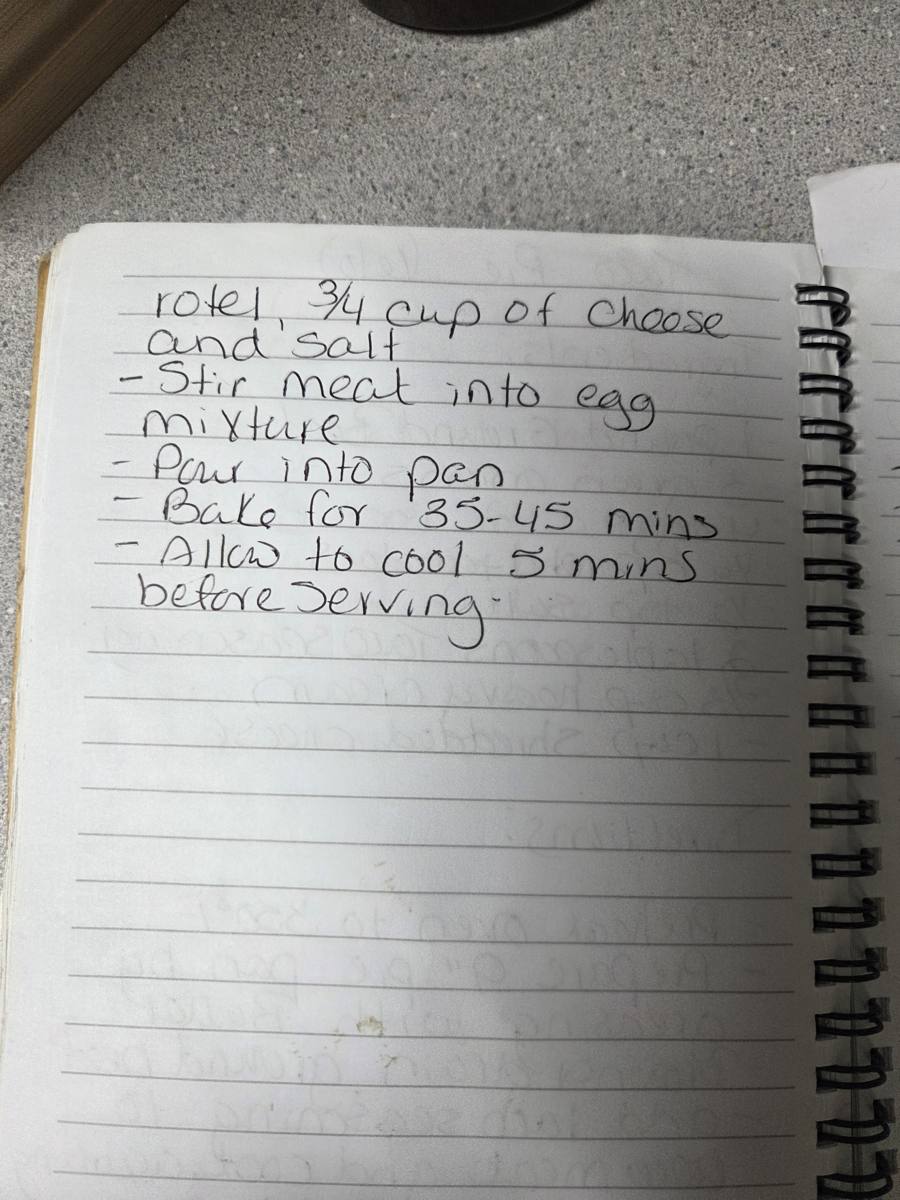 rotel, 3/4 cup of choose
and salt
- Stir meat into egg
mixture
- Pour into pan
- Bake for 35-45 mins
- Allow to cool 5 mins
before serving.